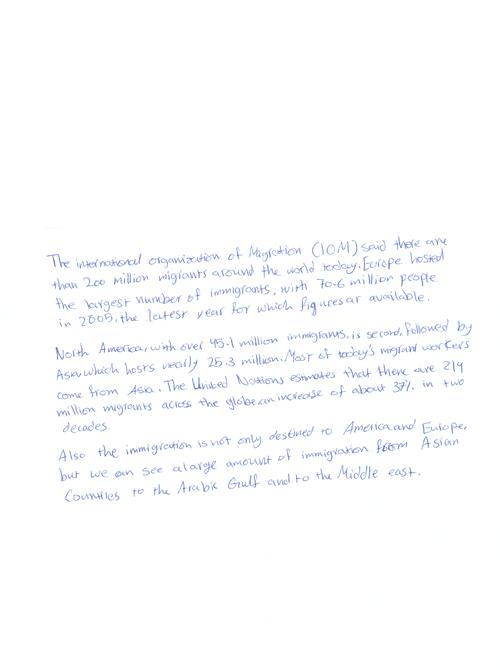 The international organization of Migration (IOM) said there are
than 200 million migrants around the world today. Europe hosted
the largest number of immigrants, with 70.6 million people
in 2005, the latest year for which figures ar available.
North America, with over 45.1 million immigrants, is second, followed by
Asia, which hosts nearly 25.3 million. Most of today's migrant workers
come from Asia. The United Nations estimates that there are 214
million migrants across the globe, an increase of about 37% in two
decades.
Also the immigration is not only destined to America and Europe,
but we can see a large amount of immigration from Asian
Countries to the Arabic Gulf and to the Middle east.